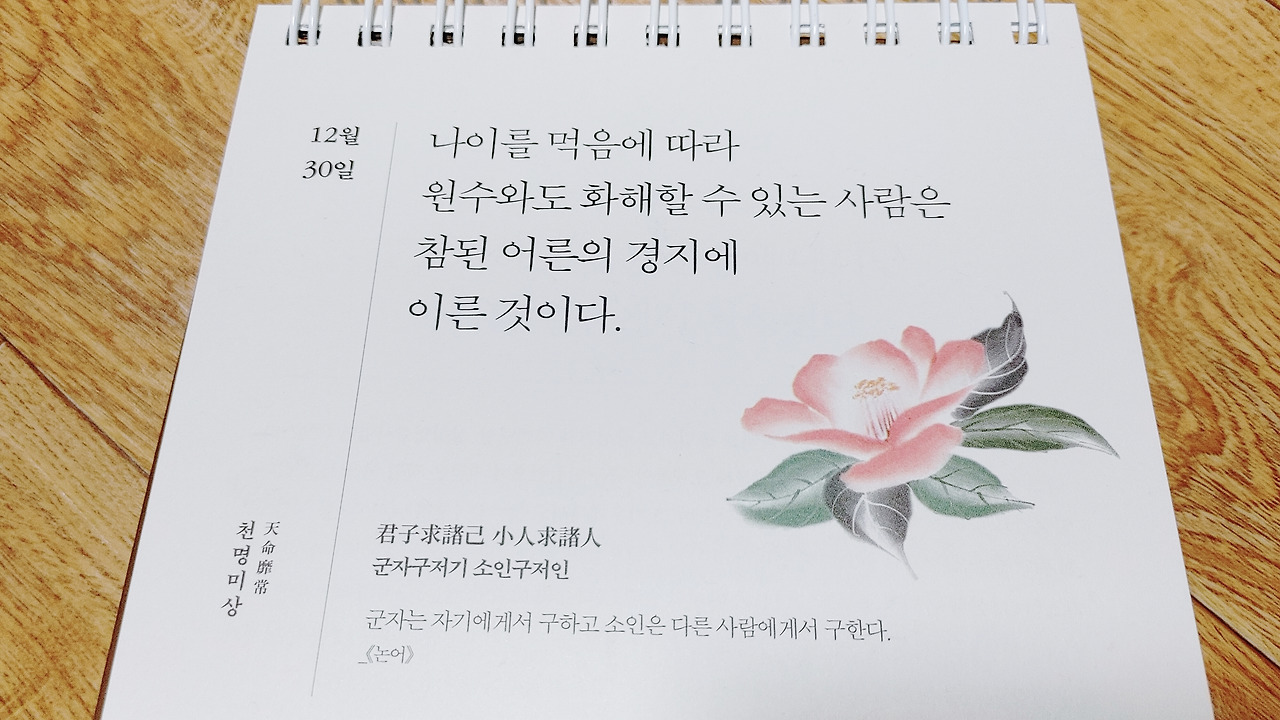 12월
30일
나이를 먹음에 따라
원수와도 화해할 수 있는 사람은
참된 어른의 경지에
이른 것이다.
天命靡常
천명미상
君子求諸己 小人求諸人
군자구저기 소인구저인
군자는 자기에게서 구하고 소인은 다른 사람에게서 구한다.
_《논어》